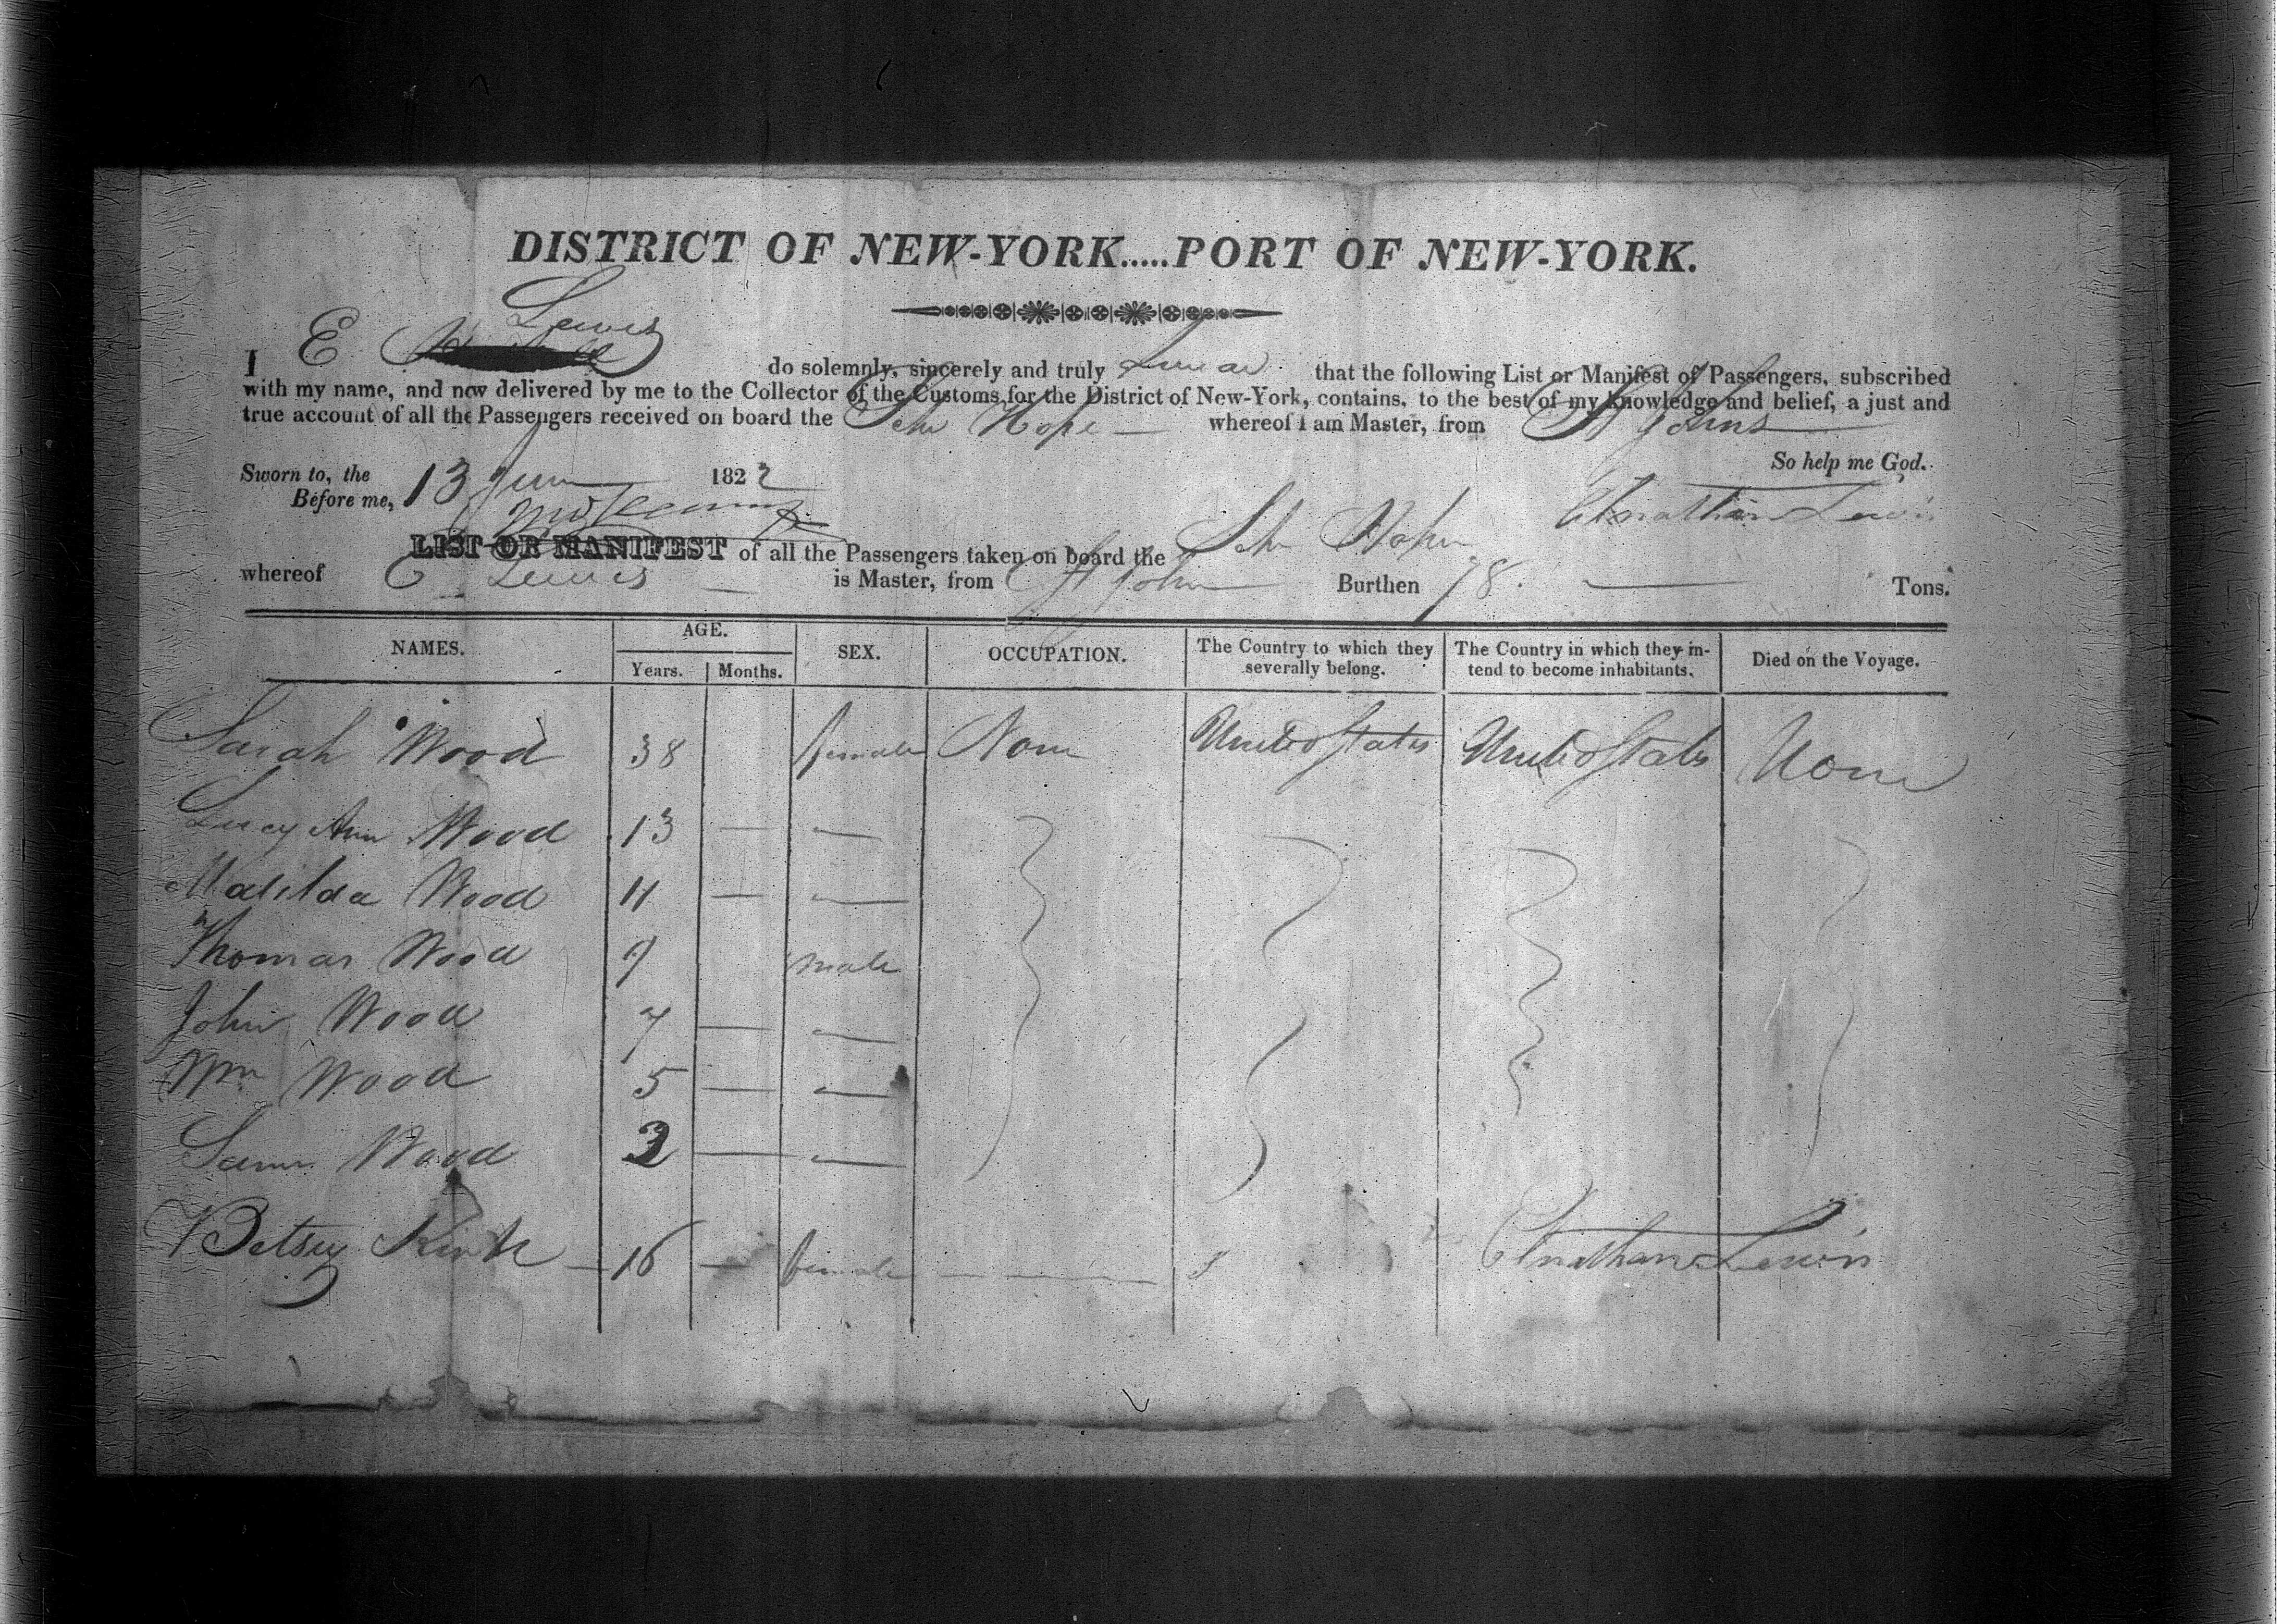 DISTRICT OF NEW-YORK.....PORT OF NEW-YORK.
Lewis
I E do solemnly, sincerely and truly Swear that the following List or Manifest of Passengers, subscribed
with my name, and now delivered by me to the Collector of the Customs for the District of New-York, contains, to the best of my knowledge and belief, a just and
true account of all the Passengers received on board the Schr Hope whereof I am Master, from St Johns
So help me God.
Sworn to, the 13 June 1822
Before me,
Elnathan Lewis
LIST OR MANIFEST of all the Passengers taken on board the Schr Hope
whereof E Lewis is Master, from St John Burthen 78 Tons.
NAMES. AGE. SEX. OCCUPATION. The Country to which they severally belong. The Country in which they intend to become inhabitants. Died on the Voyage.
Years. Months.
Sarah Wood 38 female None United States United States None
Lucy Ann Wood 13 — —
Matilda Wood 11 — —
Thomas Wood 9 male
John Wood 7 — —
Wm Wood 5 — —
Saml Wood 3 — —
Betsy — 16 — female —
Elnathan Lewis